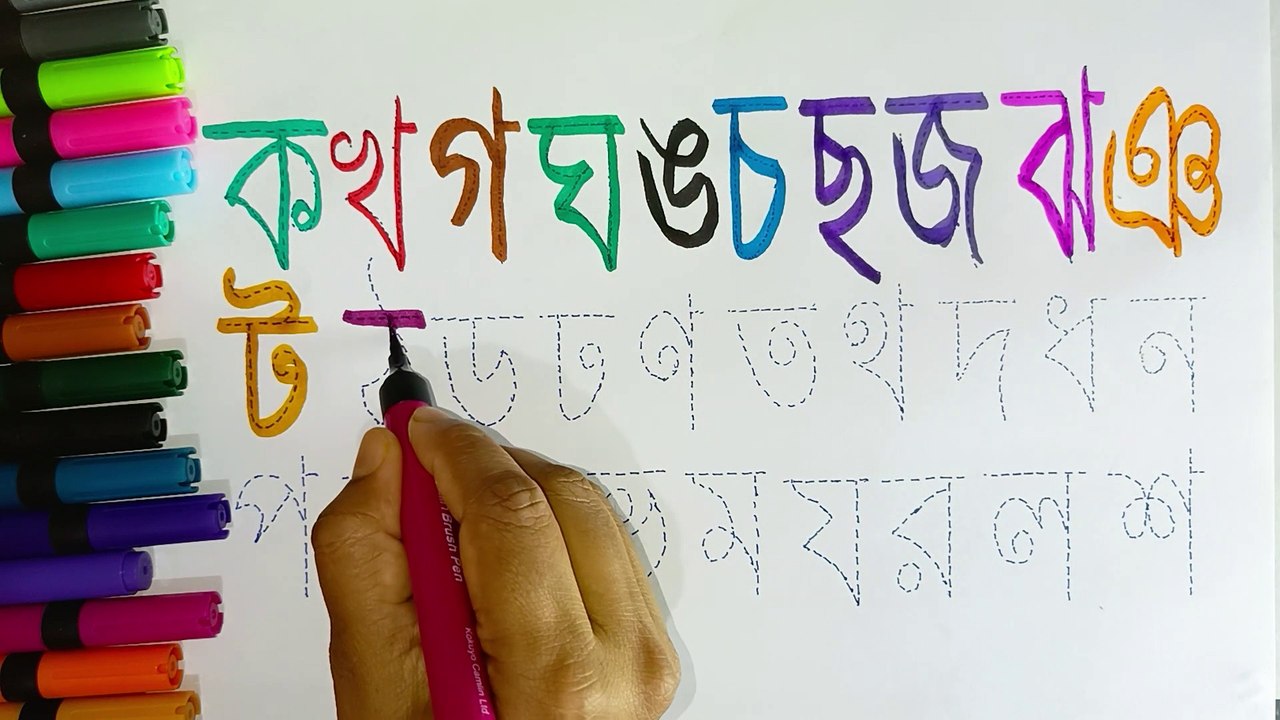 ক খ গ ঘ ঙ চ ছ জ ঝ ঞ
ট ঠ ড ঢ ণ ত থ দ ধ ন
প ম য র ল শ
Brush Pen
Kokuyo Camlin Ltd